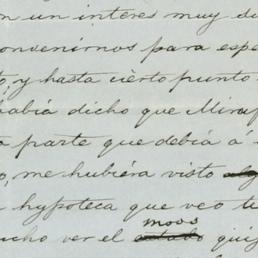 un interes muy
convenirnos para espe
y hasta ciérto punto
había dicho que Miraf
parte que debiá á
me hubiéra visto
hypoteca que veo te
moos
ucho ver el